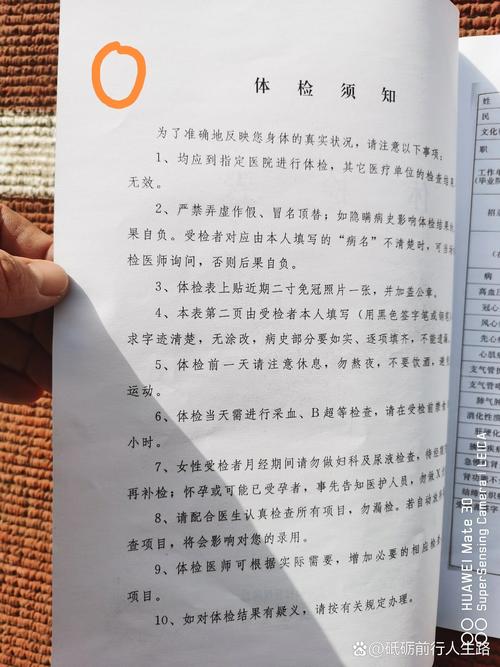 体 检 须 知
为了准确地反映您身体的真实状况，请注意以下事项：
1、均应到指定医院进行体检，其它医疗单位的检查结果
无效。
2、严禁弄虚作假、冒名顶替；如隐瞒病史影响体检结果
果自负。受检者对应由本人填写的“病名”不清楚时，可当场
检医师询问，否则后果自负。
3、体检表上贴近期二寸免冠照片一张，并加盖公章。
4、本表第二页由受检者本人填写（用黑色签字笔或钢笔
求字迹清楚，无涂改，病史部分要如实、逐项填齐，不能遗漏
5、体检前一天请注意休息，勿熬夜，不要饮酒，避免
运动。
6、体检当天需进行采血、B超等检查，请在受检前禁食
小时。
7、女性受检者月经期间请勿做妇科及尿液检查，待经期
再补检；怀孕或可能已受孕者，事先告知医护人员，勿做X
8、请配合医生认真检查所有项目，勿漏检。若自动放弃
查项目，将会影响对您的录用。
9、体检医师可根据实际需要，增加必要的相应检查
项目。
10、如对体检结果有疑义，请按有关规定办理。
姓
民
文化
职
工作单
（毕业
招
病
高血压
冠心
风心
先心
心肌
支气管扩
支气管
肺气肿
消化性
肝硬化
胰腺疾
急慢性
肾功能不
结缔组织
HUAWEI Mate 30
SuperSensing Camera LEICA
@砥砺前行人生路